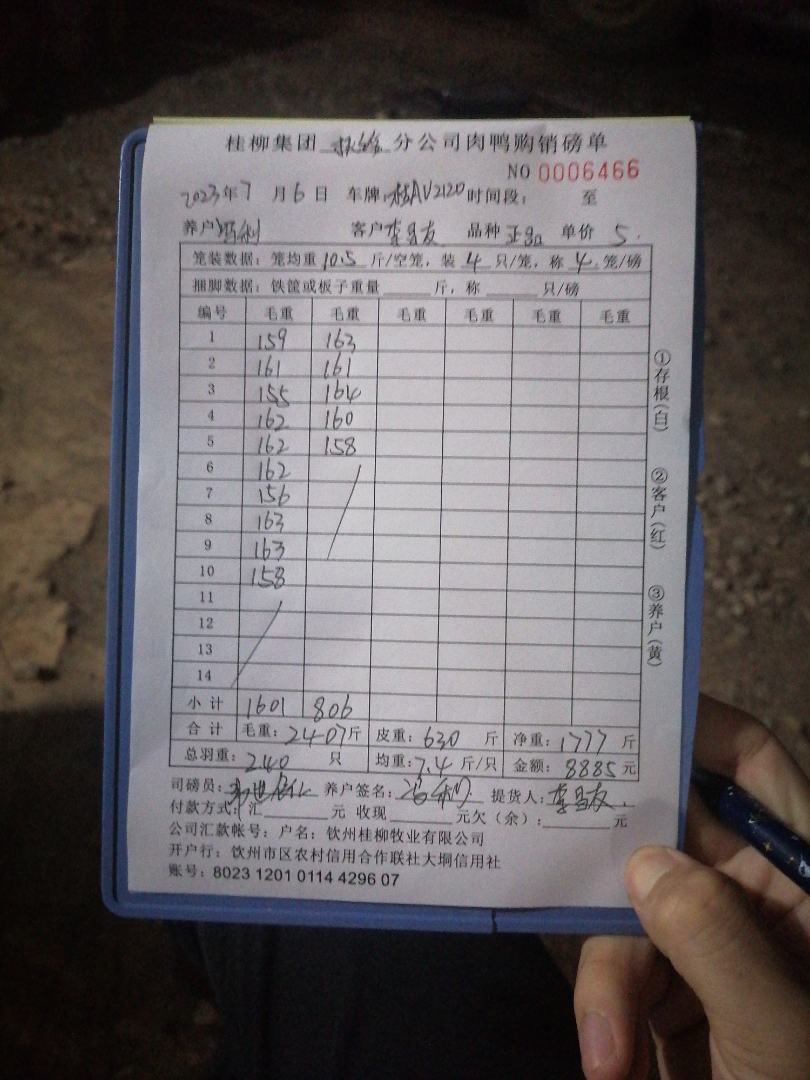 桂柳集团 分公司肉鸭购销磅单
NO 0006466
2023年7月6日 车牌:桂AV2120 时间段: 至
养户冯利 客户李昌友 品种 单价 5.
笼装数据: 笼均重10.5斤/空笼, 装4只/笼, 称4笼/磅
捆脚数据: 铁筐或板子重量 斤, 称 只/磅
编号 毛重 毛重 毛重 毛重 毛重 毛重
1 159 163
2 161 161
3 155 164
4 162 160
5 162 158
6 162
7 156
8 163
9 163
10 158
11
12
13
14
小计 1601 806
合计 毛重: 2407斤 皮重: 630 斤 净重: 1777 斤
总羽重: 240 只 均重: 7.4斤/只 金额: 8885元
司磅员: 养户签名: 冯利 提货人: 李昌友
付款方式: 汇 元 收现 元欠(余): 元
公司汇款帐号: 户名: 钦州桂柳牧业有限公司
开户行: 钦州市区农村信用合作联社大垌信用社
账号: 8023 1201 0114 4296 07
①存根(白)
②客户(红)
③养户(黄)